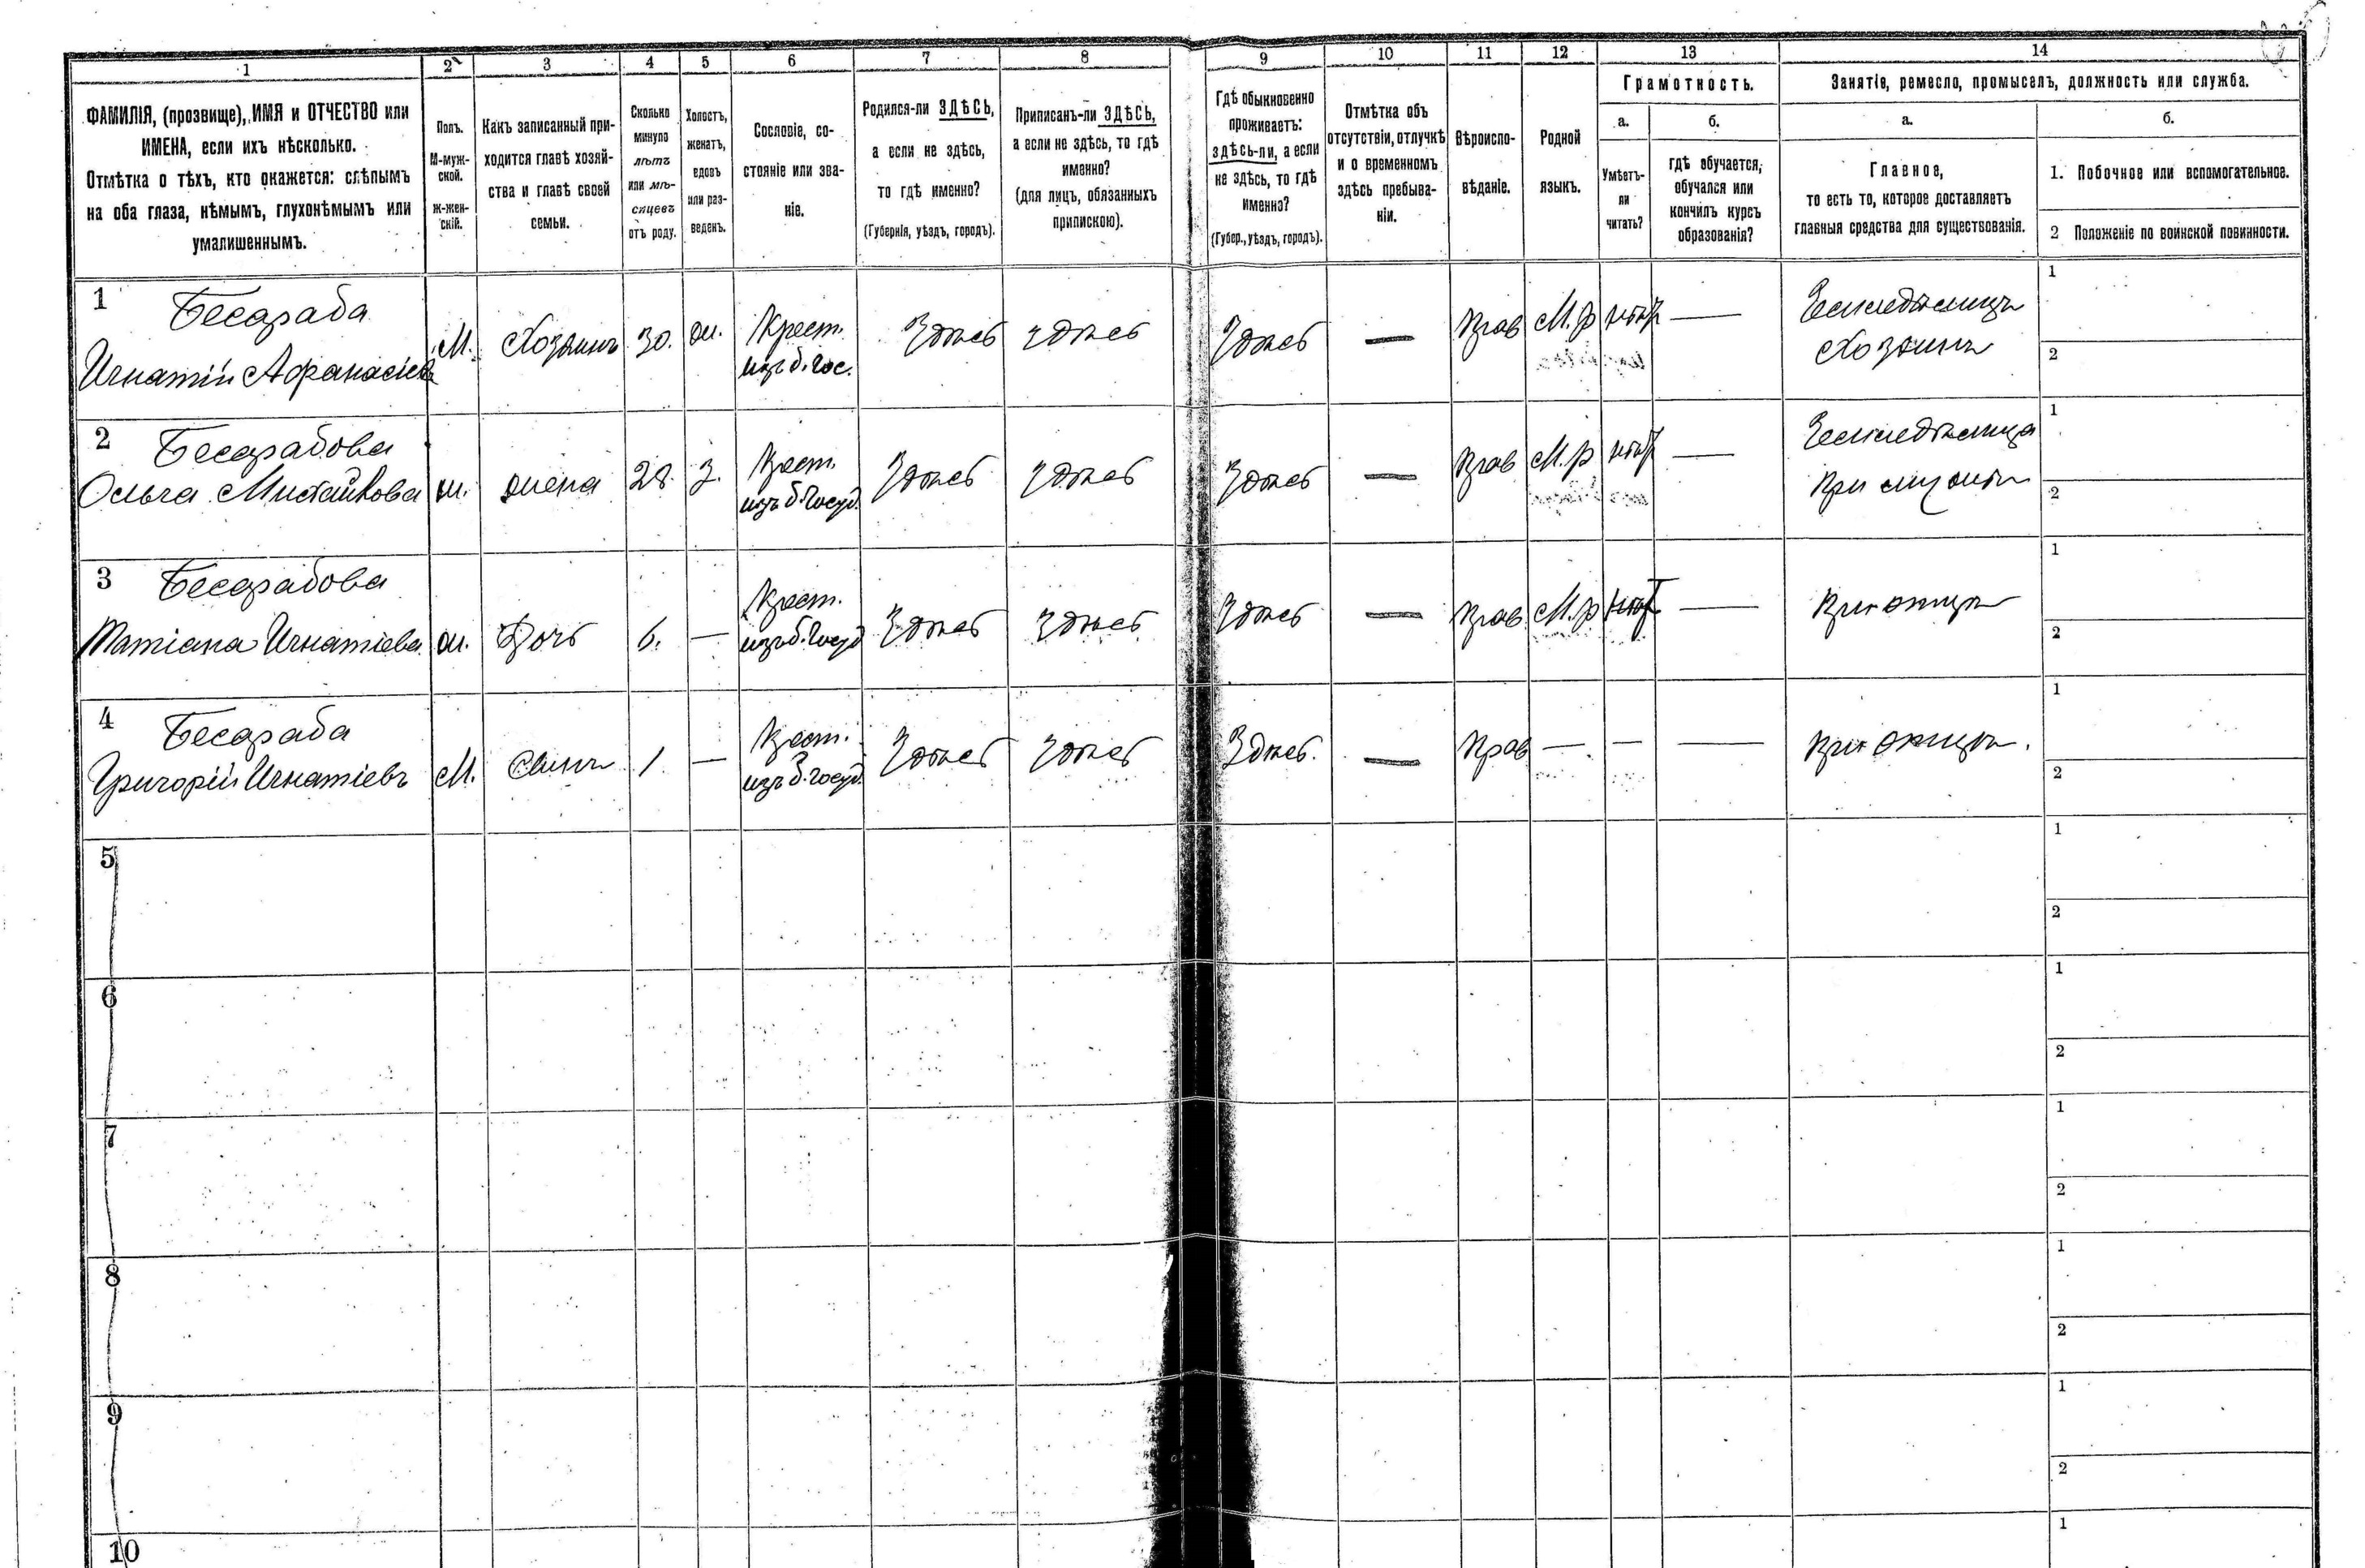 1 2 3 4 5 6 7 8 9 10 11 12 13 14
ФАМИЛІЯ, (прозвище), ИМЯ и ОТЧЕСТВО или
ИМЕНА, если ихъ нѣсколько.
Отмѣтка о тѣхъ, кто окажется: слѣпымъ
на оба глаза, нѣмымъ, глухонѣмымъ или
умалишеннымъ.
Полъ.
М-муж-
ской.
Ж-жен-
скій.
Какъ записанный при-
ходится главѣ хозяй-
ства и главѣ своей
семьи.
Сколько
минуло
лѣтъ
или мѣ-
сяцевъ
отъ роду.
Холостъ,
женатъ,
вдовъ
или раз-
веденъ.
Сословіе, со-
стояніе или зва-
ніе.
Родился-ли ЗДѢСЬ,
а если не здѣсь,
то гдѣ именно?
(Губернія, уѣздъ, городъ).
Приписанъ-ли ЗДѢСЬ,
а если не здѣсь, то гдѣ
именно?
(для лицъ, обязанныхъ
припискою).
Гдѣ обыкновенно
проживаетъ:
здѣсь-ли, а если
не здѣсь, то гдѣ
именно?
(Губер., уѣздъ, городъ).
Отмѣтка объ
отсутствіи, отлучкѣ
и о временномъ
здѣсь пребыва-
ніи.
Вѣроиспо-
вѣданіе.
Родной
языкъ.
Грамотность.
а.
Умѣетъ-
ли
читать?
б.
гдѣ обучается,
обучался или
кончилъ курсъ
образованія?
Занятіе, ремесло, промыселъ, должность или служба.
а.
Главное,
то есть то, которое доставляетъ
главныя средства для существованія.
б.
1. Побочное или вспомогательное.
2 Положеніе по воинской повинности.
1 Бесараба
Игнатій Афанасіевъ
М.
Хозяинъ
30.
ж.
Крест.
изъ б. гос.
Здѣсь
здѣсь
Здѣсь
—
Прав
М.р
нѣтъ
—
Земледѣлецъ
Хозяинъ
1
2
2 Бесарабова
Ольга Михайлова
ж.
жена
28.
З.
Крест.
изъ б. Госуд.
Здѣсь
здѣсь
Здѣсь
—
Прав
М.р
нѣтъ
—
Земледѣлица
При мужѣ
1
2
3 Бесарабова
Татіана Игнатіева
ж.
Дочь
6.
—
Крест.
изъ б. Госуд
Здѣсь
Здѣсь
Здѣсь
—
Прав.
М.р
нѣт
—
При отцѣ
1
2
4 Бесараба
Григорій Игнатіевъ
М.
Сынъ
1
—
Крест.
изъ б. госуд.
Здѣсь
Здѣсь
Здѣсь.
—
Прав
—
—
—
При отцѣ.
1
2
5
1
2
6
1
2
7
1
2
8
1
2
9
1
2
10
1